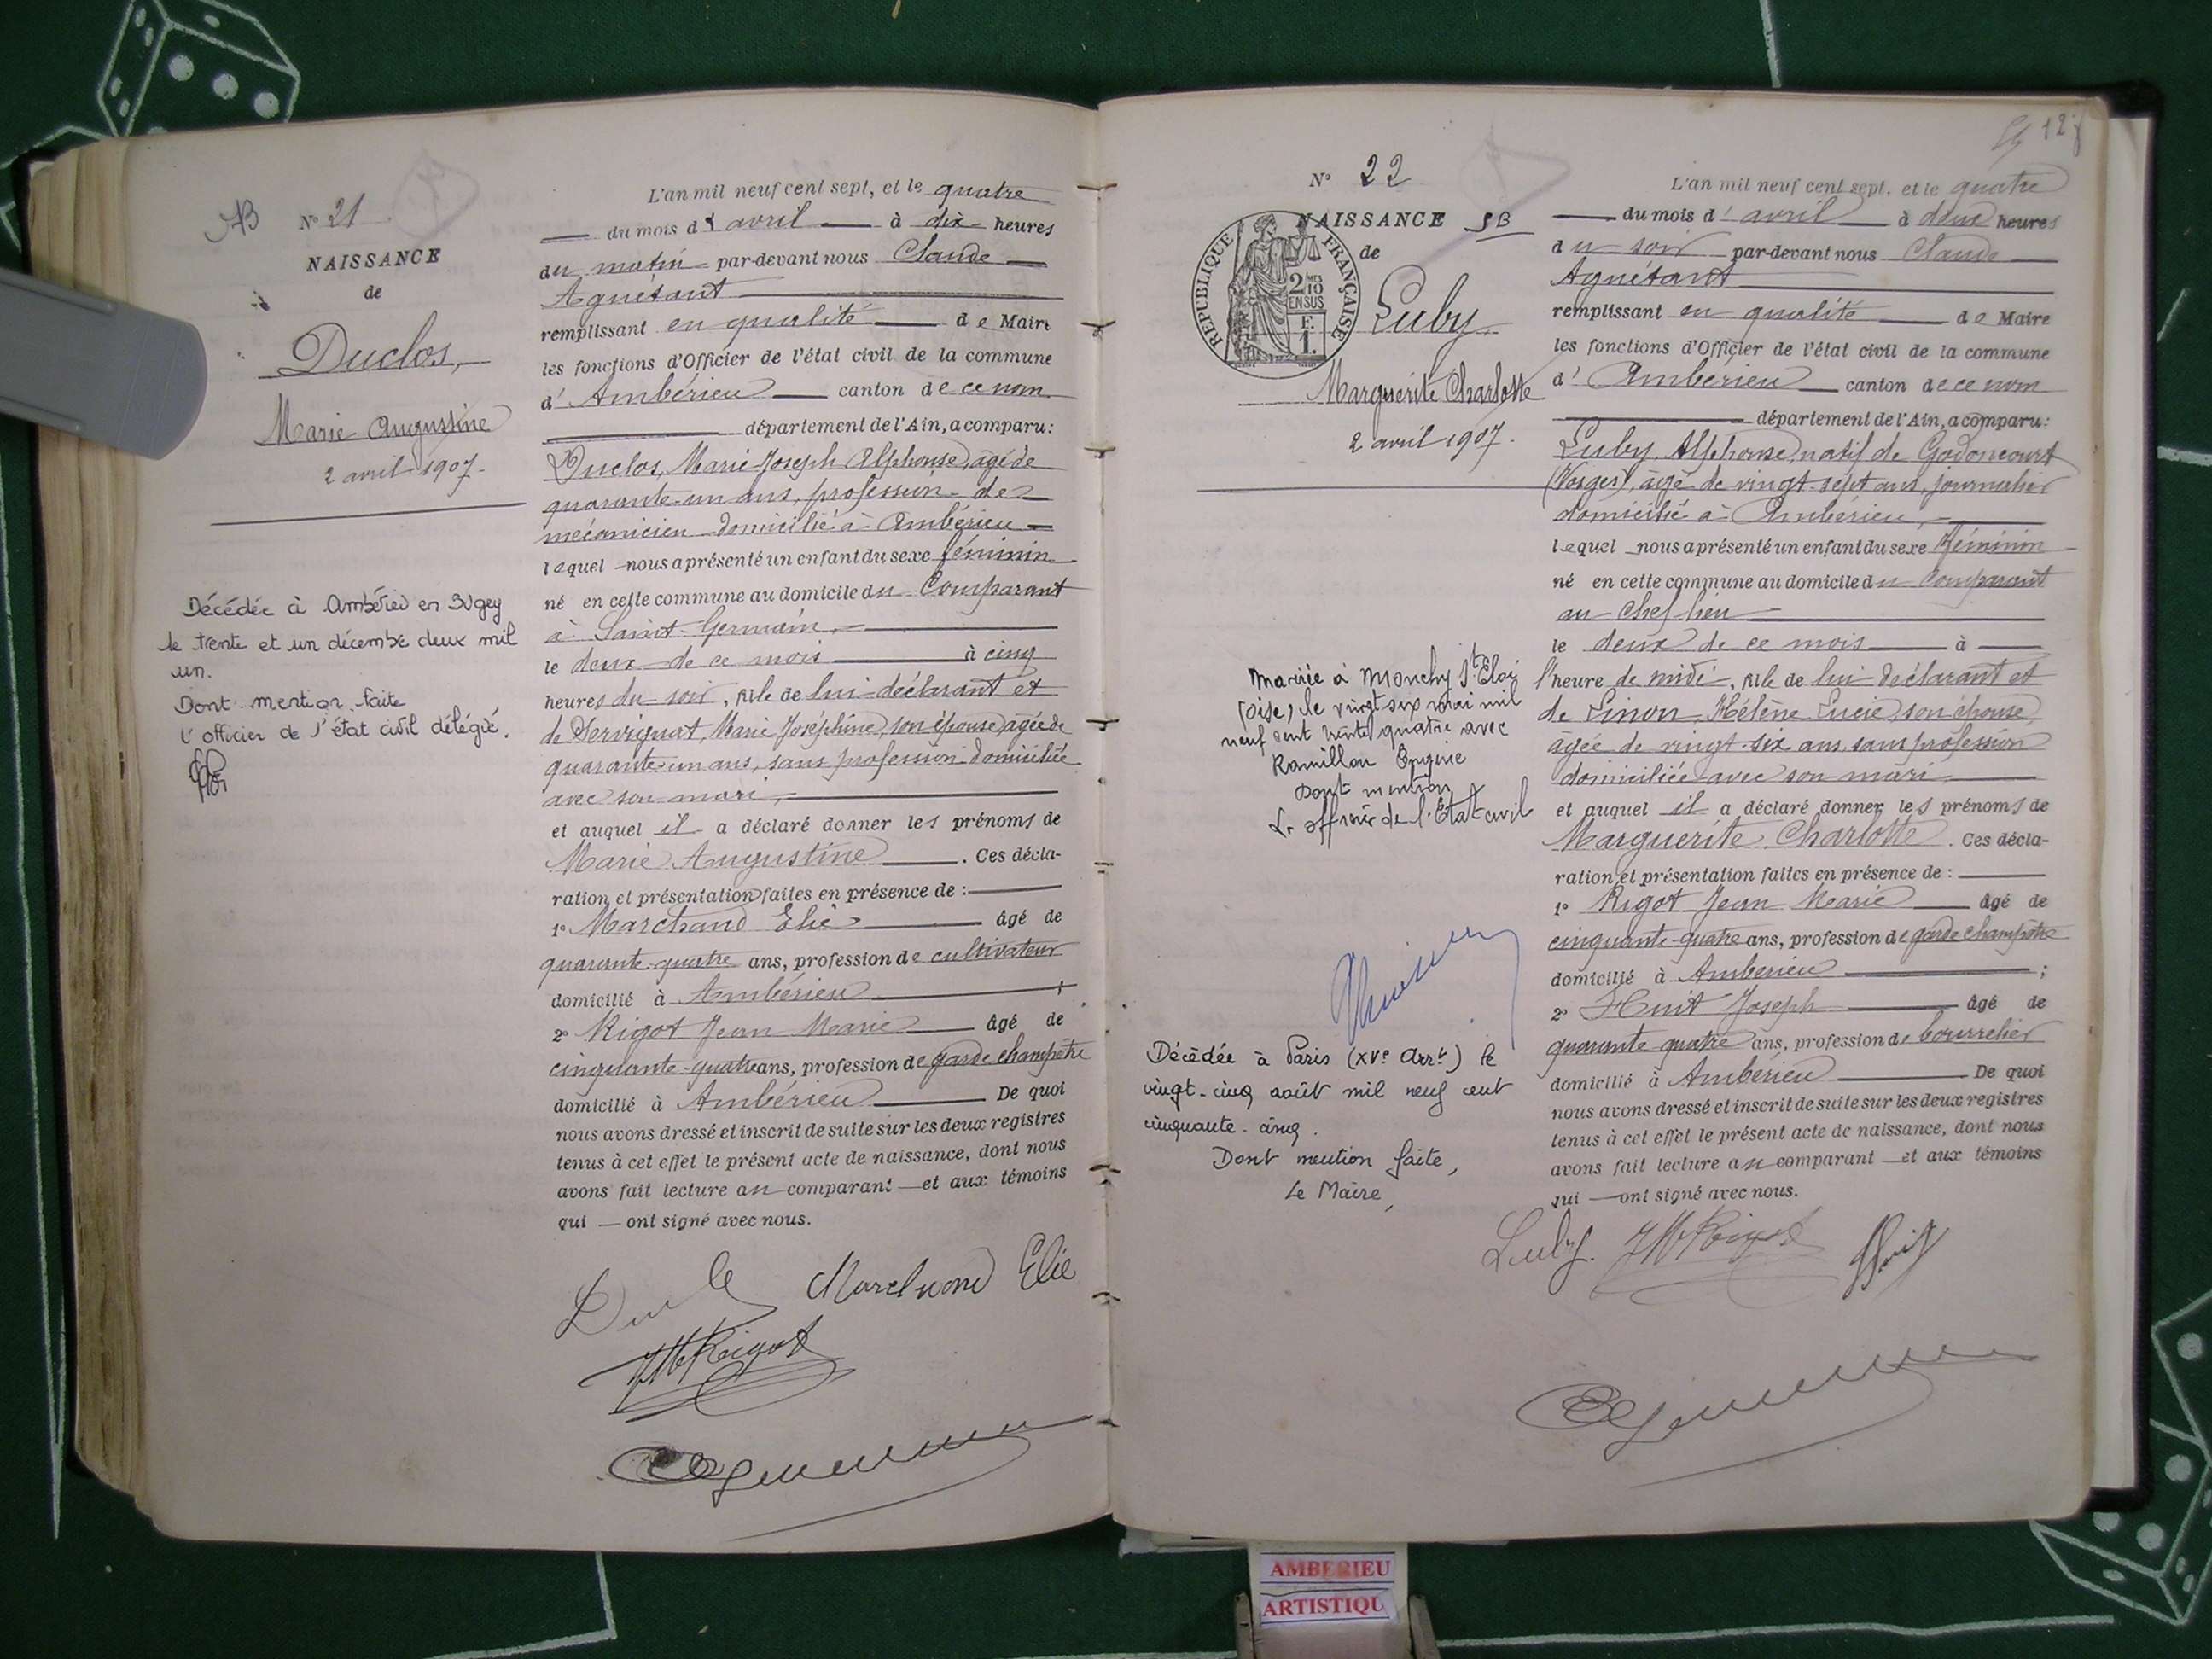 AB N° 21
NAISSANCE
de
Duclos,
Marie Augustine
2 avril 1907.
Décédée à Ambérieu en Bugey
le trente et un décembre deux mil
un.
Dont mention faite
l'officier de l'état civil délégué.
L'an mil neuf cent sept, et le quatre
du mois d'avril à dix heures
du matin par-devant nous Claude
Aguétant
remplissant en qualité de Maire
les fonctions d'Officier de l'état civil de la commune
d'Ambérieu canton de ce nom
département de l'Ain, a comparu:
Duclos, Marie Joseph Alphonse, âgé de
quarante-un ans, profession de
mécanicien domicilié à Ambérieu
lequel nous a présenté un enfant du sexe féminin
né en cette commune au domicile du Comparant
à Saint-Germain,
le deux de ce mois à cinq
heures du soir, fille de lui déclarant et
de Servignat, Marie Joséphine, son épouse, âgée de
quarante-un ans, sans profession domiciliée
avec son mari,
et auquel il a déclaré donner les prénoms de
Marie Augustine. Ces décla-
ration et présentation faites en présence de :
1° Marchand Elie âgé de
quarante-quatre ans, profession de cultivateur
domicilié à Ambérieu ;
2° Rigot Jean Marie âgé de
cinquante-quatre ans, profession de garde champêtre
domicilié à Ambérieu De quoi
nous avons dressé et inscrit de suite sur les deux registres
tenus à cet effet le présent acte de naissance, dont nous
avons fait lecture au comparant et aux témoins
qui ont signé avec nous.
Marchand Elie
JM Rigot
12
N° 22
NAISSANCE
de
REPUBLIQUE FRANÇAISE
2 MES
10
EN SUS
F.
1.
Luby
Marguerite Charlotte
2 avril 1907.
Mariée à Monchy St Eloi
(Oise) le vingt six mai mil
neuf cent trente quatre avec
Ramillon Eugène
Dont mention
L'officier de l'Etat civil
Décédée à Paris (XVe Arrt) le
vingt-cinq août mil neuf cent
cinquante-cinq.
Dont mention faite,
Le Maire,
L'an mil neuf cent sept, et le quatre
du mois d'avril à deux heures
du soir par-devant nous Claude
Aguétant
remplissant en qualité de Maire
les fonctions d'Officier de l'état civil de la commune
d'Ambérieu canton de ce nom
département de l'Ain, a comparu:
Luby Alphonse, natif de Godoncourt
(Vosges), âgé de vingt-sept ans, journalier
domicilié à Ambérieu,
lequel nous a présenté un enfant du sexe féminin
né en cette commune au domicile du Comparant
au Chef-lieu
le deux de ce mois à
l'heure de midi, fille de lui déclarant et
de Linon, Hélène Lucie, son épouse,
âgée de vingt-six ans, sans profession
domiciliée avec son mari
et auquel il a déclaré donner les prénoms de
Marguerite Charlotte. Ces décla-
ration et présentation faites en présence de :
1° Rigot Jean Marie âgé de
cinquante-quatre ans, profession de garde champêtre
domicilié à Ambérieu ;
2° Huit Joseph âgé de
quarante quatre ans, profession de bourrelier
domicilié à Ambérieu De quoi
nous avons dressé et inscrit de suite sur les deux registres
tenus à cet effet le présent acte de naissance, dont nous
avons fait lecture au comparant et aux témoins
qui ont signé avec nous.
Luby. JM Rigot Huit
AMBERIEU
ARTISTIQU